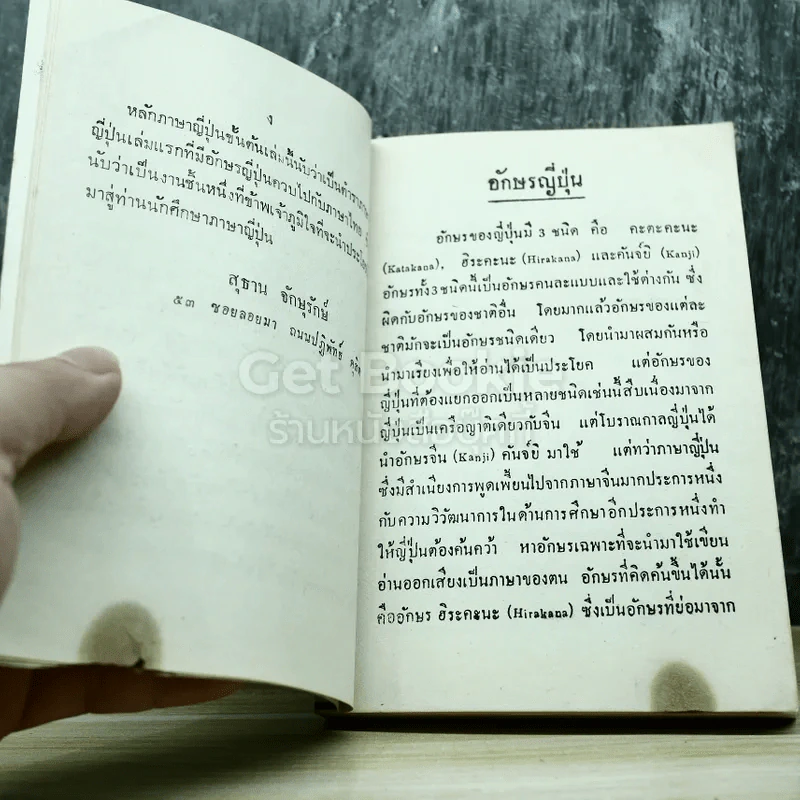 ง
หลักภาษาญี่ปุ่นขั้นต้นเล่มนี้นับว่าเป็นตำรา
ญี่ปุ่นเล่มแรกที่มีอักษรญี่ปุ่นควบไปกับภาษาไทย
นับว่าเป็นงานชิ้นหนึ่งที่ข้าพเจ้าภูมิใจที่จะนำ
มาสู่ท่านนักศึกษาภาษาญี่ปุ่น
สุธาน จักษุรักษ์
๕๓ ซอยลอยมา ถนนปฏิพัทธ์
อักษรญี่ปุ่น
อักษรของญี่ปุ่นมี 3 ชนิด คือ คะตะคะนะ
(Katakana), ฮิระคะนะ (Hirakana) และคันจ์ยิ (Kanji)
อักษรทั้ง 3 ชนิดนี้เป็นอักษรคนละแบบและใช้ต่างกัน ซึ่ง
ผิดกับอักษรของชาติอื่น โดยมากแล้วอักษรของแต่ละ
ชาติมักจะเป็นอักษรชนิดเดียว โดยนำมาผสมกันหรือ
นำมาเรียงเพื่อให้อ่านได้เป็นประโยค แต่อักษรของ
ญี่ปุ่นที่ต้องแยกออกเป็นหลายชนิดเช่นนี้สืบเนื่องมาจาก
ญี่ปุ่นเป็นเครือญาติเดียวกับจีน แต่โบราณกาลญี่ปุ่นได้
นำอักษรจีน (Kanji) คันจ์ยิ มาใช้ แต่ทว่าภาษาญี่ปุ่น
ซึ่งมีสำเนียงการพูดเพี้ยนไปจากภาษาจีนมากประการหนึ่ง
กับความวิวัฒนาการในด้านการศึกษาอีกประการหนึ่งทำ
ให้ญี่ปุ่นต้องค้นคว้า หาอักษรเฉพาะที่จะนำมาใช้เขียน
อ่านออกเสียงเป็นภาษาของตน อักษรที่คิดค้นขึ้นได้นั้น
คืออักษร ฮิระคะนะ (Hirakana) ซึ่งเป็นอักษรที่ย่อมาจาก
Get Bookie